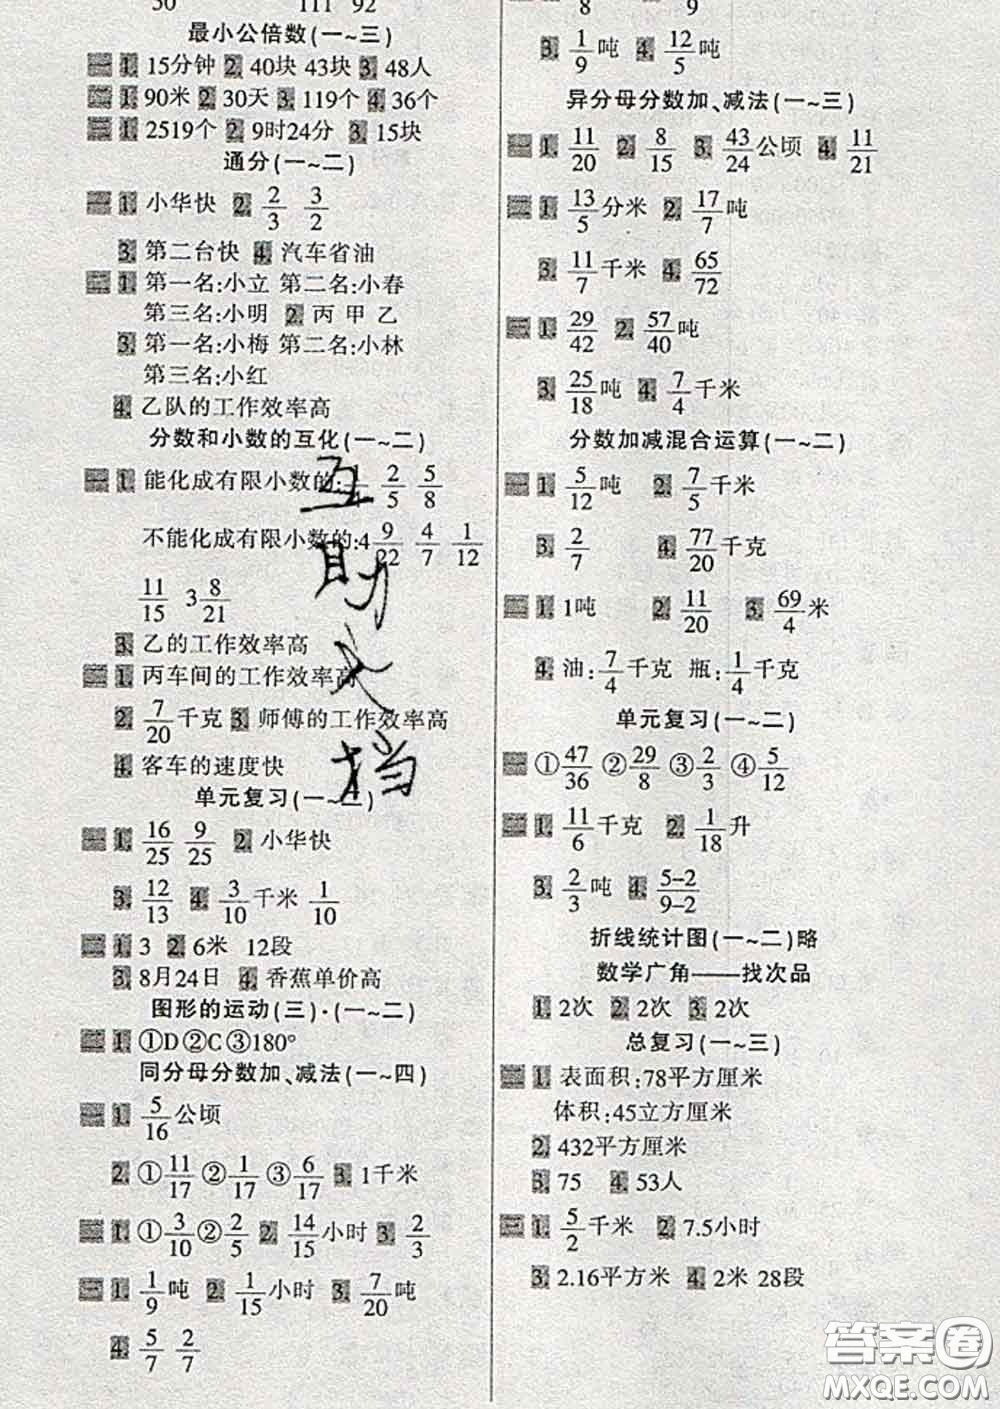 50 111 92
最小公倍数(一~三)
一 1. 15分钟 2. 40块 43块 3. 48人
二 1. 90米 2. 30天 3. 119个 4. 36个
三 1. 2519个 2. 9时24分 3. 15块
通分(一~二)
一 1. 小华快 2. 2/3 3/2
3. 第二台快 4. 汽车省油
二 1. 第一名:小立 第二名:小春
第三名:小明 2. 丙 甲 乙
3. 第一名:小梅 第二名:小林
第三名:小红
4. 乙队的工作效率高
分数和小数的互化(一~二)
一 1. 能化成有限小数的: 2/5 5/8
不能化成有限小数的:4 9/22 4/7 1/12
11/15 3 8/21
3. 乙的工作效率高
二 1. 丙车间的工作效率高
2. 7/20千克 3. 师傅的工作效率高
4. 客车的速度快
单元复习(一~二)
一 1. 16/25 9/25 2. 小华快
3. 12/13 4. 3/10千米 1/10
二 1. 3 2. 6米 12段
3. 8月24日 4. 香蕉单价高
图形的运动(三)·(一~二)
二 1. ①D②C③180°
同分母分数加、减法(一~四)
一 1. 5/16公顷
2. ①11/17 ②1/17 ③6/17 3. 1千米
二 1. ①3/10 ②2/5 2. 14/15小时 3. 2/3
三 1. 1/9吨 2. 1/15小时 3. 7/20吨
4. 5/7 2/7
8 9
3. 1/9吨 4. 12/5吨
异分母分数加、减法(一~三)
一 1. 11/20 2. 8/15 3. 43/24公顷 4. 11/21
二 1. 13/5分米 2. 17/7吨
3. 11/7千米 4. 65/72
三 1. 29/42 2. 57/40吨
3. 25/18吨 4. 7/4千米
分数加减混合运算(一~二)
一 1. 5/12吨 2. 7/5千米
3. 2/7 4. 77/20千克
二 1. 1吨 2. 11/20 3. 69/4米
4. 油:7/4千克 瓶:1/4千克
单元复习(一~二)
一 ①47/36 ②29/8 ③2/3 ④5/12
二 1. 11/6千克 2. 1/18升
3. 2/3吨 4. 5-2/9-2
折线统计图(一~二)略
数学广角——找次品
1. 2次 2. 2次 3. 2次
总复习(一~三)
二 1. 表面积:78平方厘米
体积:45立方厘米
2. 432平方厘米
3. 75 4. 53人
三 1. 5/2千米 2. 7.5小时
3. 2.16平方米 4. 2米 28段
互
助
文
档
答案圈
MXQE.COM